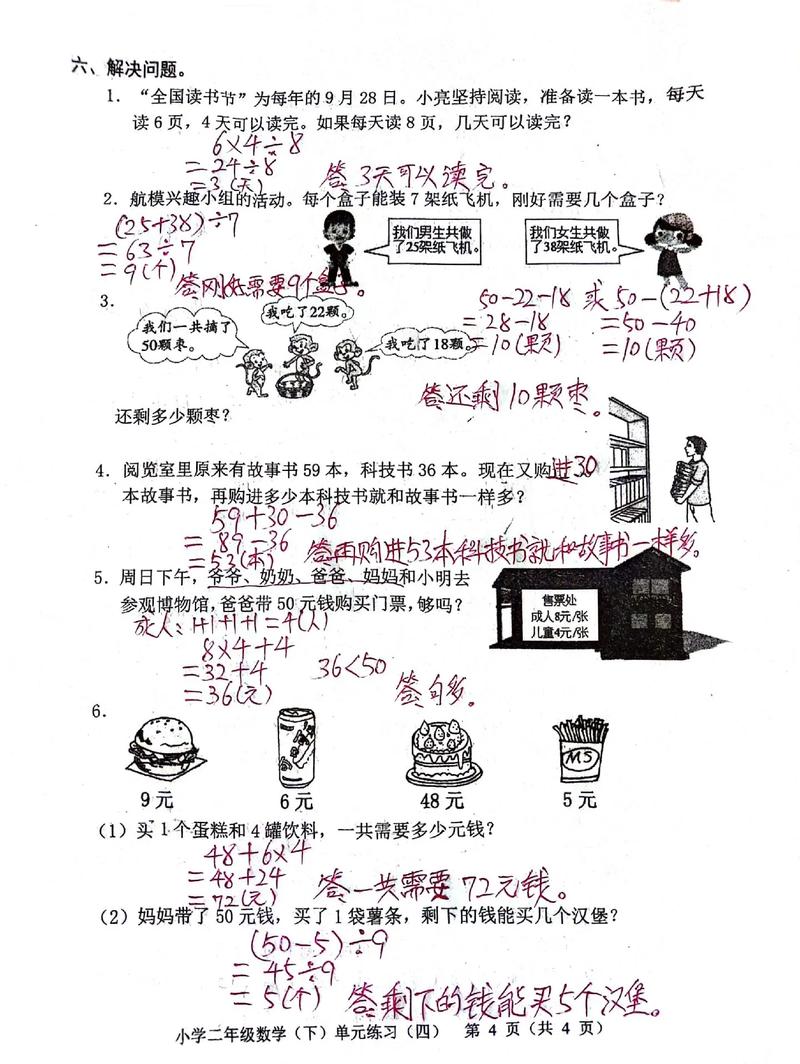 六、解决问题。
1. “全国读书节”为每年的9月28日。小亮坚持阅读，准备读一本书，每天
读6页，4天可以读完。如果每天读8页，几天可以读完？
6×4÷8
=24÷8
=3(天)
答3天可以读完。
2. 航模兴趣小组的活动。每个盒子能装7架纸飞机，刚好需要几个盒子？
(25+38)÷7
=63÷7
=9(个)
我们男生共做
了25架纸飞机。
我们女生共做
了38架纸飞机。
答刚好需要9个盒子。
3.
我们一共摘了
50颗枣。
我吃了22颗。
我吃了18颗。
50-22-18 或 50-(22+18)
=28-18 =50-40
=10(颗) =10(颗)
答还剩10颗枣。
还剩多少颗枣？
4. 阅览室里原来有故事书59本，科技书36本。现在又购进30
本故事书，再购进多少本科技书就和故事书一样多？
59+30-36
=89-36
=53(本)
答再购进53本科技书就和故事书一样多。
5. 周日下午，爷爷、奶奶、爸爸、妈妈和小明去
参观博物馆，爸爸带50元钱购买门票，够吗？
售票处
成人8元/张
儿童4元/张
成人：1+1+1+1=4(人)
8×4+4
=32+4
=36(元)
36<50
答句多。
6.
9元 6元 48元 5元
MS
(1) 买1个蛋糕和4罐饮料，一共需要多少元钱？
48+6×4
=48+24
=72(元)
答一共需要72元钱。
(2) 妈妈带了50元钱，买了1袋薯条，剩下的钱能买几个汉堡？
(50-5)÷9
=45÷9
=5(个)
答剩下的钱能买5个汉堡。
小学二年级数学（下）单元练习（四） 第4页（共4页）